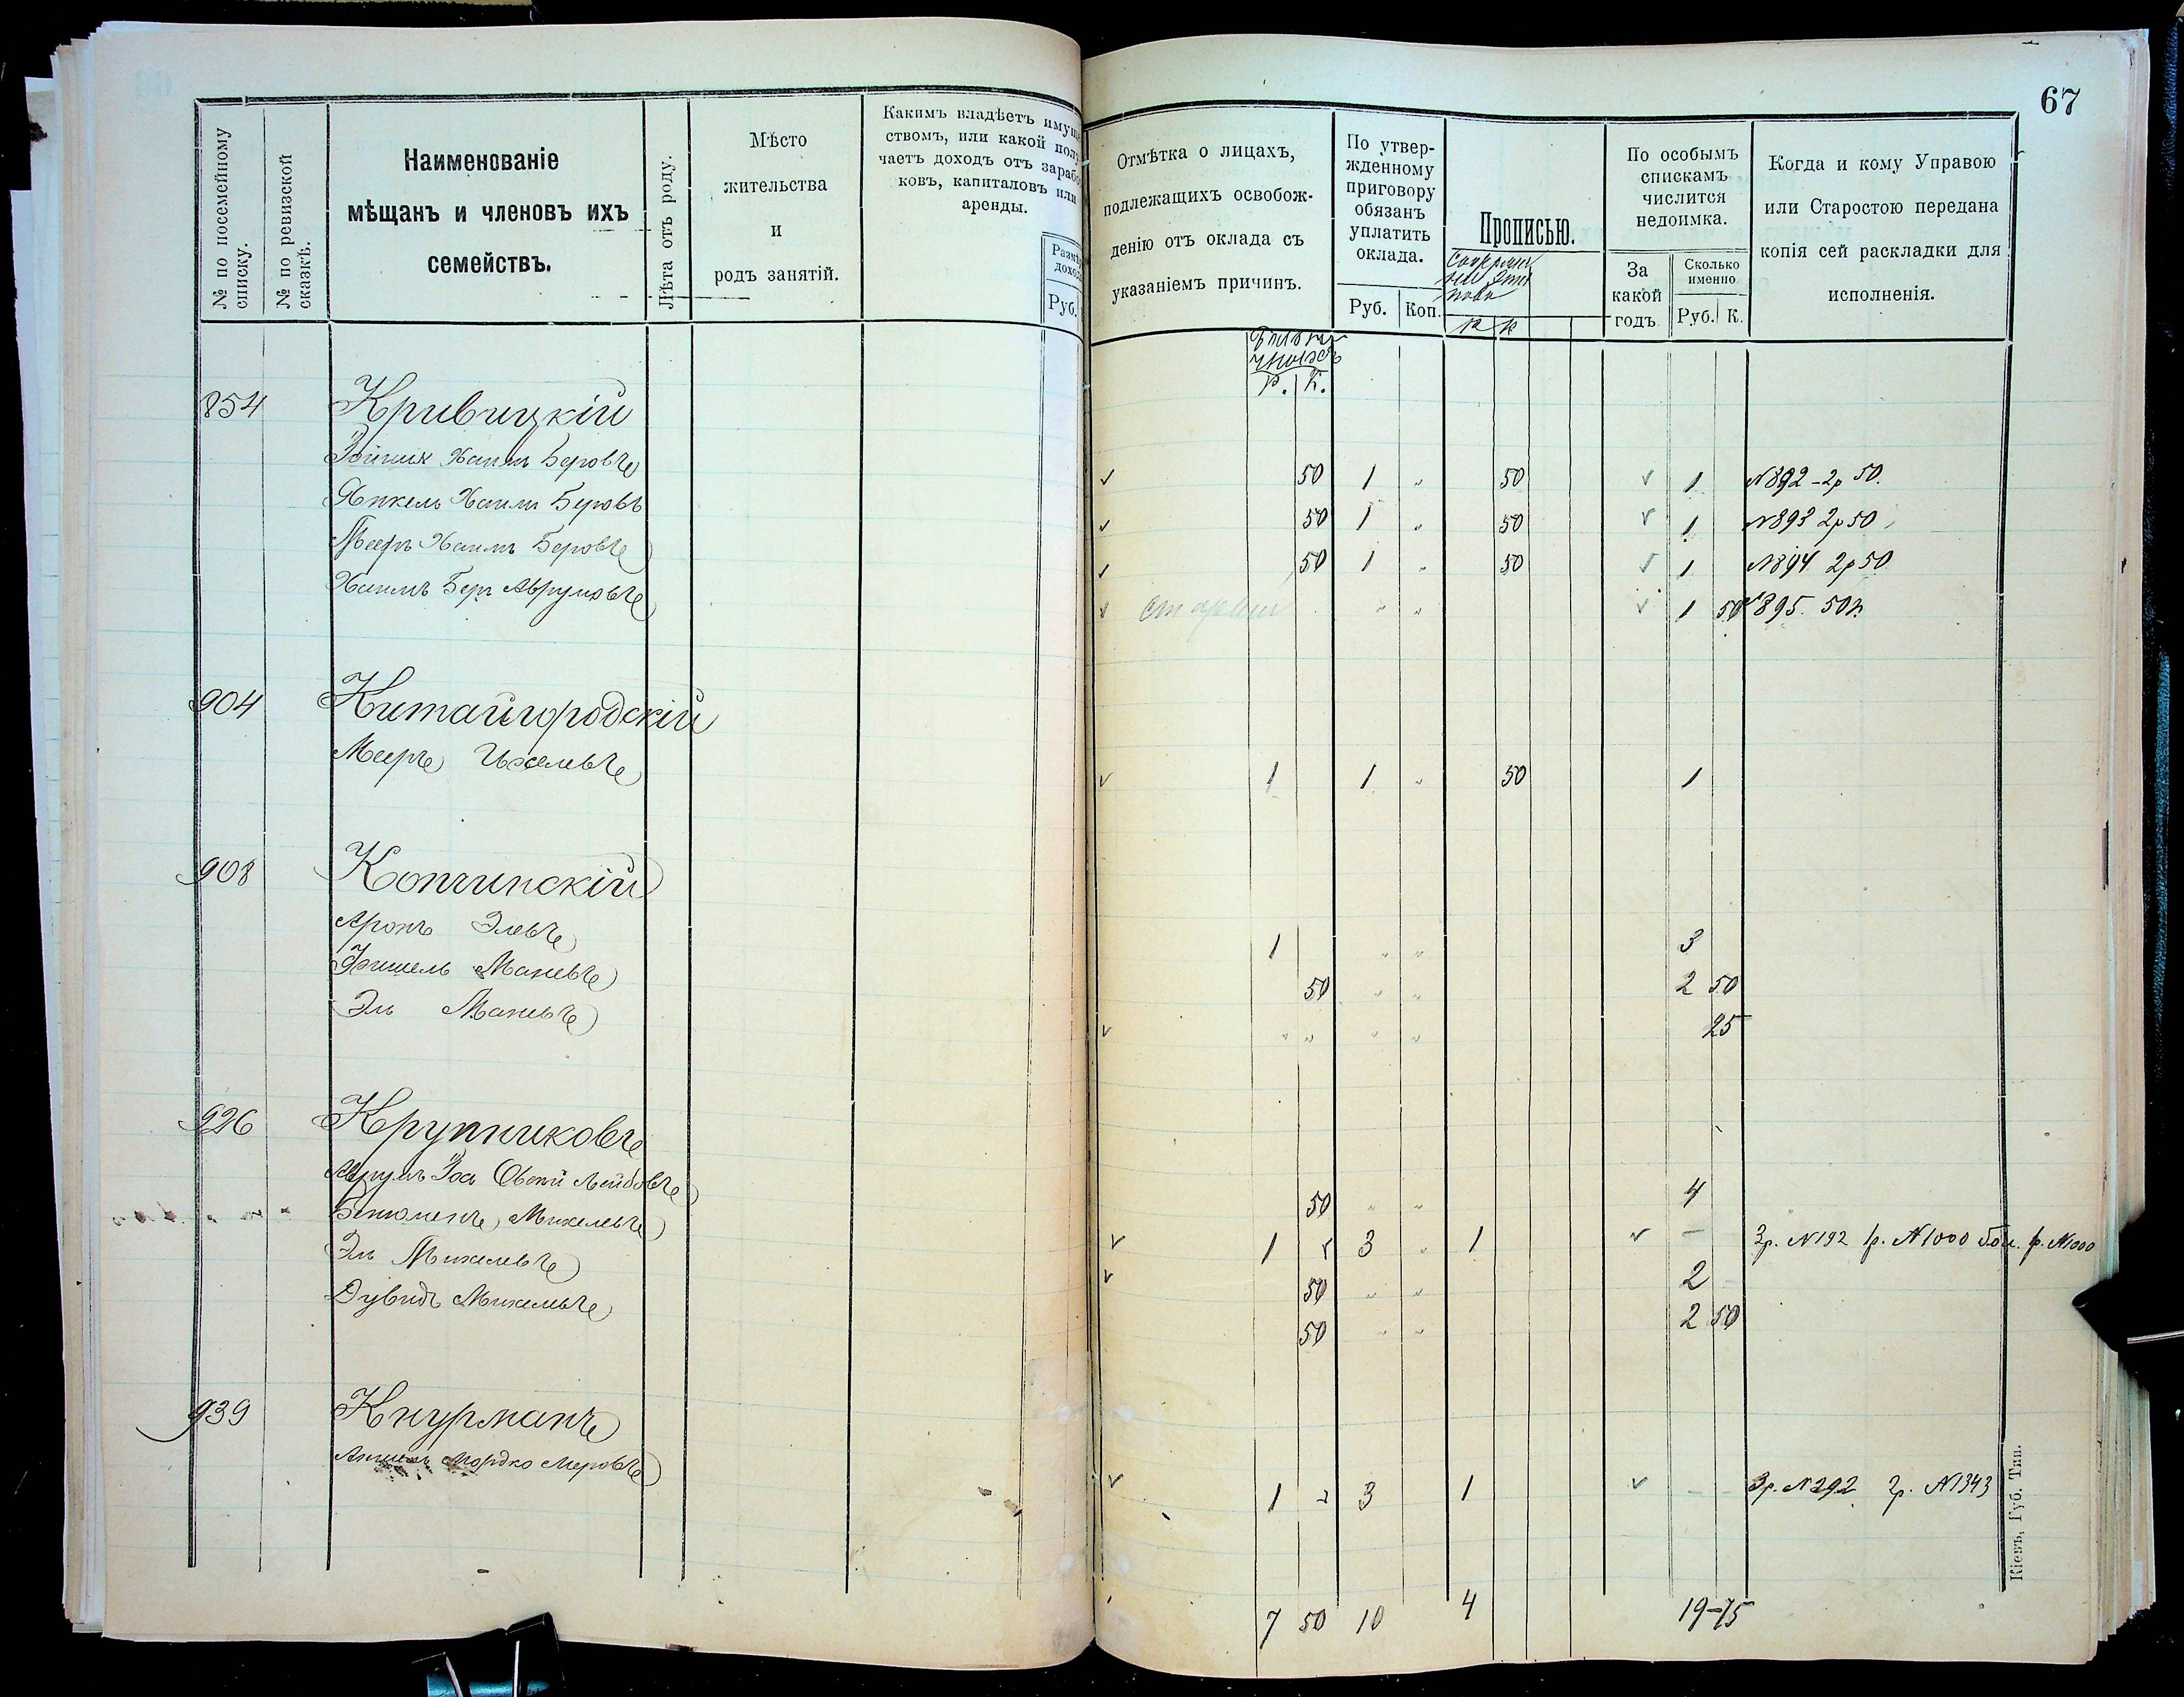 67
№ по посемейному списку.
№ по ревизской сказкѣ.
Наименованіе
мѣщанъ и членовъ ихъ
семействъ.
Лѣта отъ роду.
Мѣсто
жительства
и
родъ занятій.
Какимъ владѣетъ имуще
ствомъ, или какой полу
чаетъ доходъ отъ зарабо
ковъ, капиталовъ или
аренды.
Руб.
Отмѣтка о лицахъ,
подлежащихъ освобож-
денію отъ оклада съ
указаніемъ причинъ.
По утвер-
жденному
приговору
обязанъ
уплатить
оклада.
Руб. Коп.
Прописью.
По особымъ
спискамъ
числится
недоимка.
За
какой
годъ
Сколько
именно
Руб. К.
Когда и кому Управою
или Старостою передана
копія сей раскладки для
исполненія.
Р. К.
854 Кривицкій
Хаимъ Беровъ 50 1 " 50 1 №892-2р 50.
Янкель Хаимъ Беровъ 50 1 " 50 1 №893 2р50
Мееръ Хаимъ Беровъ 50 1 " 50 1 №894 2р50
Хаимъ Беръ Аврумовъ " " 1 50 №895. 50к
904 Китайгородскій
Мееръ 1 1 " 50 1
908 Копчинскій
Аронъ Элевъ 1 " " 3
Фишель Маневъ 50 " " 2 50
Эль Маневъ " " " " 25
926 Крупниковъ
Аврумъ Лейбовъ 50 " " 4
Михелевъ 1 3 " 1 — 3р. №192 1р. №1000 р. №1000
Эль Михелевъ 50 " " 2
Дувидъ Михелевъ 50 " " 2 50
939 Кнурманъ
Мордко Меровъ 1 3 1 3р. №292 2р. №1343
7 50 10 4 19-75
Кіевъ, Губ. Тип.